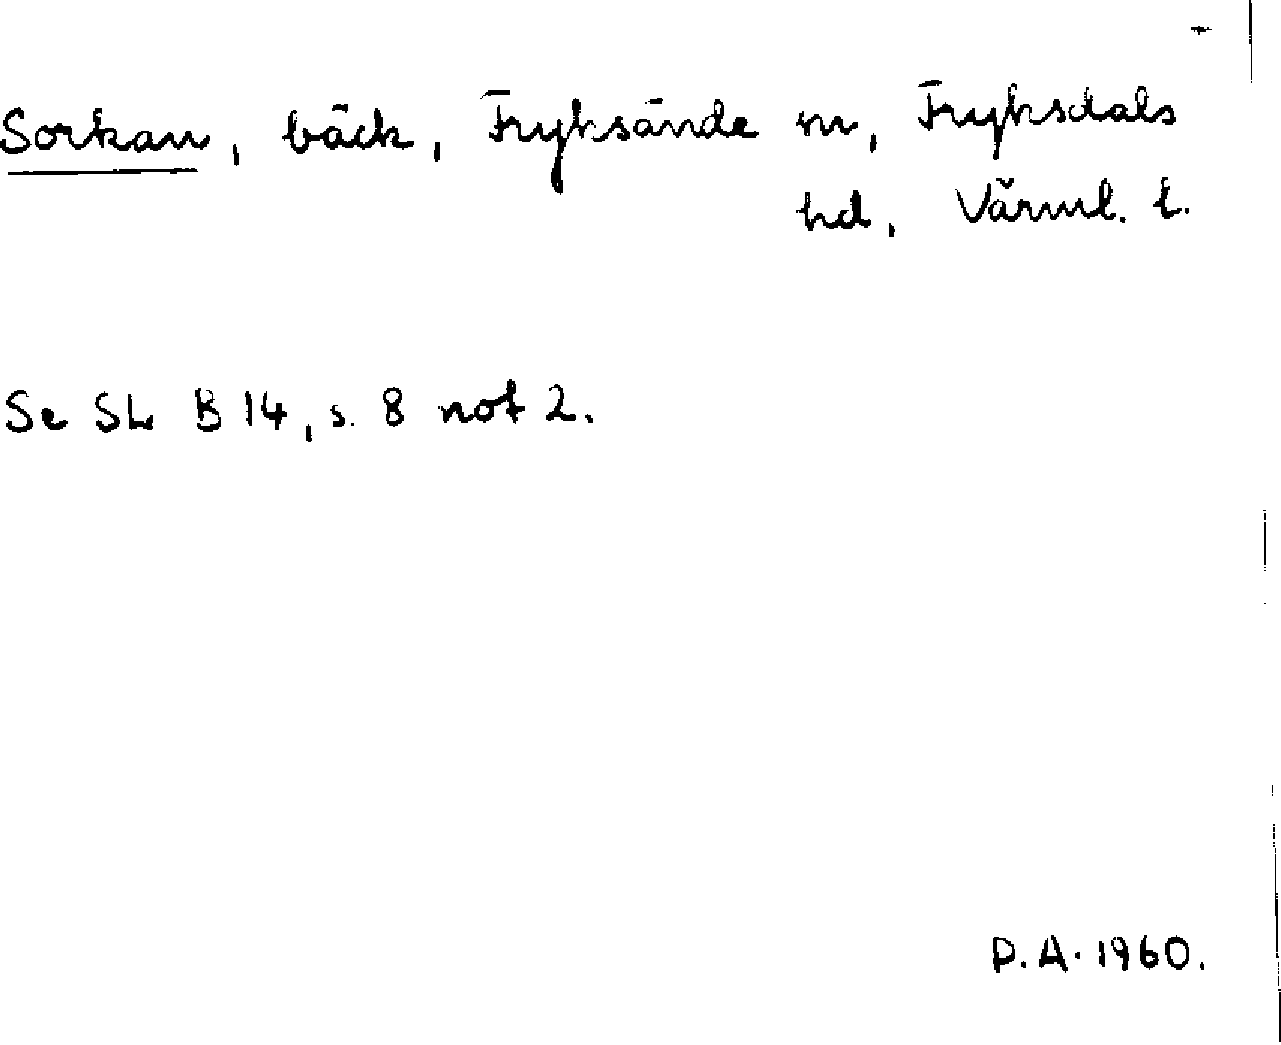 Sorkan, bäck, Fryksände sn, Fryksdals
hd, Värml. l.
Se SL B 14, s. 8 not 2.
D.A. 1960.